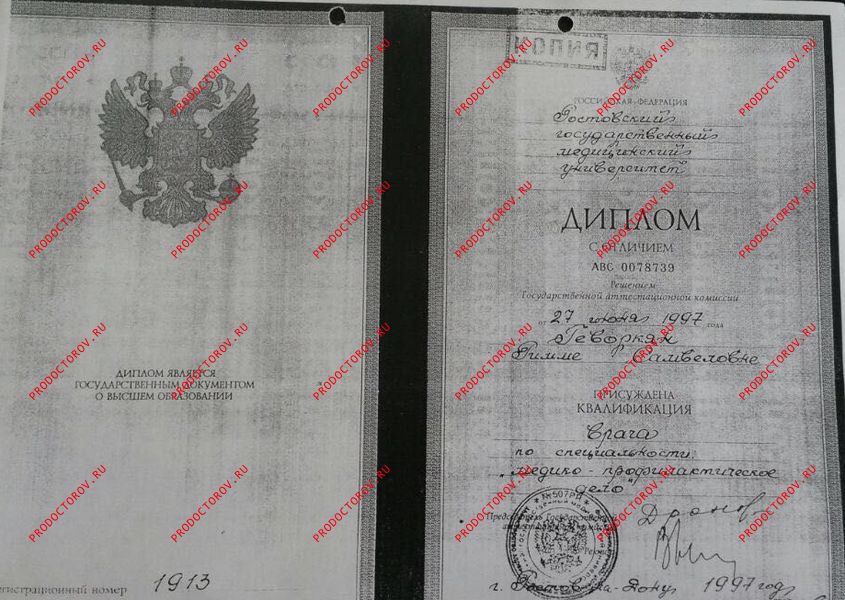 ДИПЛОМ ЯВЛЯЕТСЯ
ГОСУДАРСТВЕННЫМ ДОКУМЕНТОМ
О ВЫСШЕМ ОБРАЗОВАНИИ
егистрационный номер 1913
КОПИЯ
РОССИЙСКАЯ ФЕДЕРАЦИЯ
Ростовский
государственный
медицинский
университет
ДИПЛОМ
С ОТЛИЧИЕМ
АВС 0078739
Решением
Государственной аттестационной комиссии
от 27 июня 1997 года
Геворкян
Римме Самвеловне
ПРИСУЖДЕНА
КВАЛИФИКАЦИЯ
Врача
по специальности
„медико-профилактическое
дело"
Председатель Государственной
г. Ростов-на-Дону 1997 год
PRODOCTOROV.RU